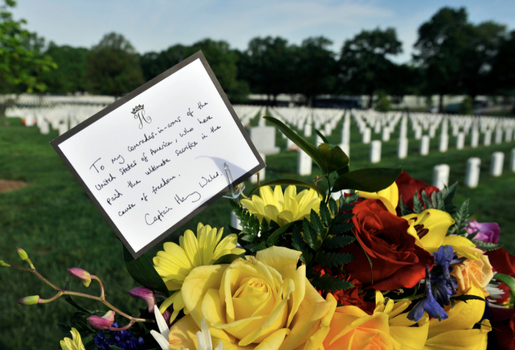 To my comrades-in-arms of the
United States of America, who have
paid the ultimate sacrifice in the
cause of freedom.
Captain Harry Wales